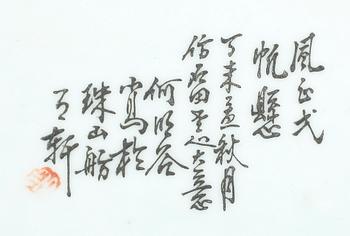 風正弌
帆懸
丁未孟秋月
仿石田大意
何明谷
寫於
珠山
軒